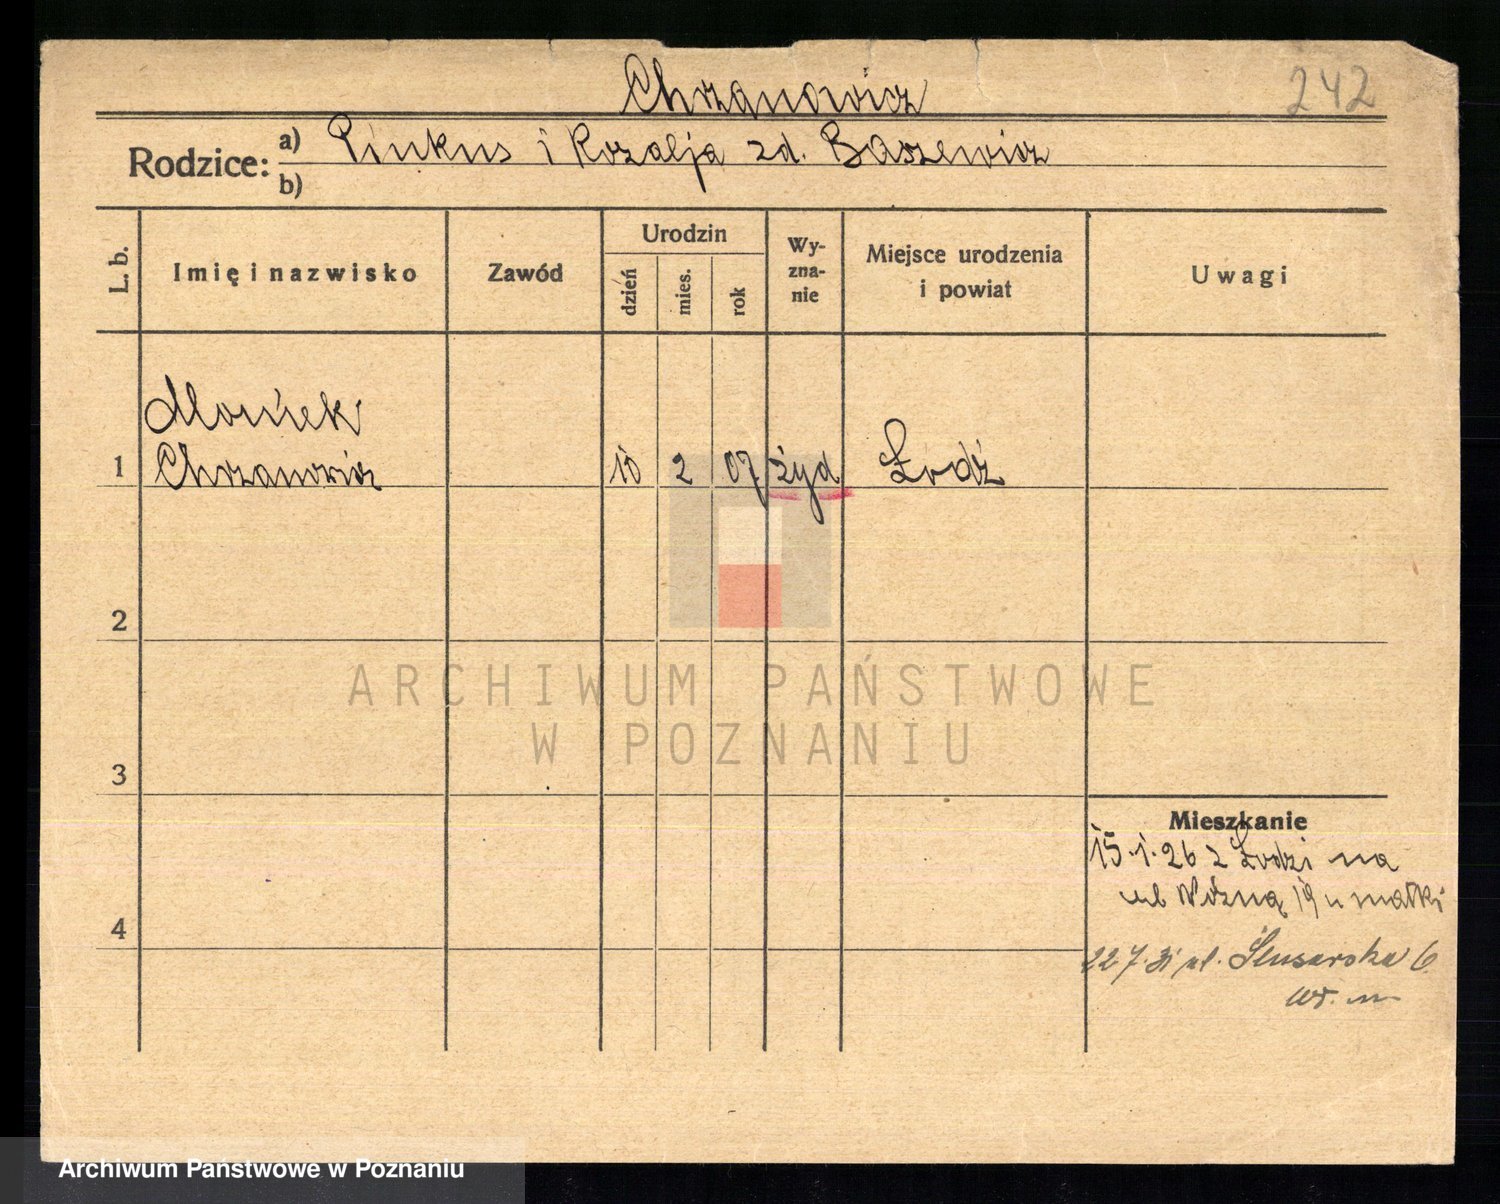 Chrzanowicz
242
Rodzice:
a) Pinkus i Rozalja zd. Baszewicz
b)
L. b.
Imię i nazwisko
Zawód
Urodzin
dzień
mies.
rok
Wy-
zna-
nie
Miejsce urodzenia
i powiat
Uwagi
Moniek
1 Chrzanowicz 10 2 07 żyd Łódź
2
3
4
Mieszkanie
15.1.26 z Łodzi na
ul Wóżną 19 u matki
22 7 31 ul. Ślusarska 6
ARCHIWUM PAŃSTWOWE
W POZNANIU
Archiwum Państwowe w Poznaniu